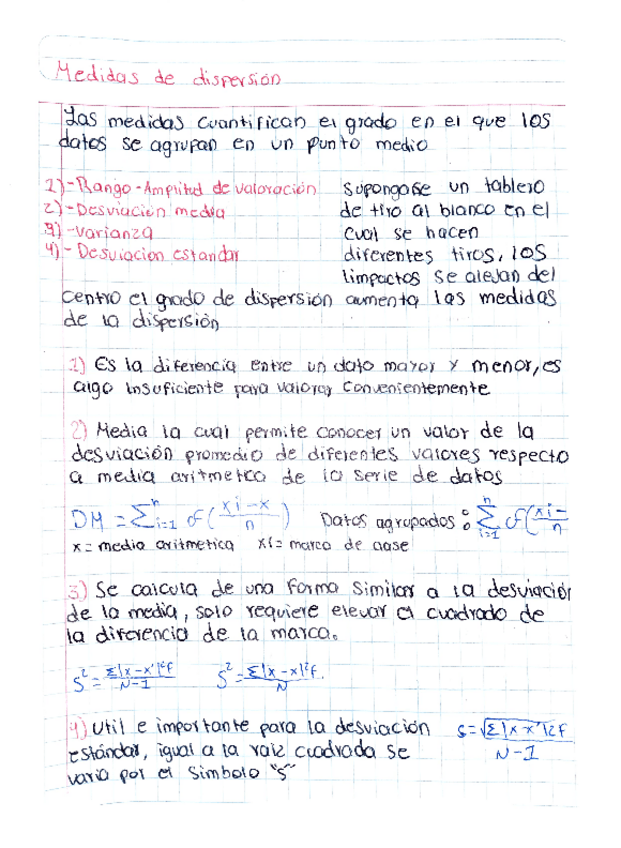 Medidas de dispersión
Las medidas cuantifican el grado en el que los
datos se agrupan en un punto medio
1)-Rango-Amplitud de valoración
2)-Desviación media
3)-Varianza
4)-Desviacion estandar
Supongase un tablero
de tiro al blanco en el
cual se hacen
diferentes tiros, los
limpactos se alejan del
centro el grado de dispersión aumenta las medidas
de la dispersión
1) Es la diferencia entre un dato mayor y menor, es
algo insuficiente para valorar convenientemente
2) Media la cual permite conocer un valor de la
desviación promedio de diferentes valores respecto
a media aritmetca de la serie de datos
DM = Σⁿi=1 of (xi-x/n) Datos agrupados: Σⁿi=1 of (xi-/n
x = media aritmetica xi= marca de case
3) Se calcula de una forma similar a la desviación
de la media, solo requiere elevar al cuadrado de
la diferencia de la marca.
S²= Σ|x-x'|²f/N-1 S²= Σ|x-x|²f./N
4) Util e importante para la desviación
estándar, igual a la raiz cuadrada se
varia por el simbolo "s"
s=√Σ|x-x'|2f/N-1